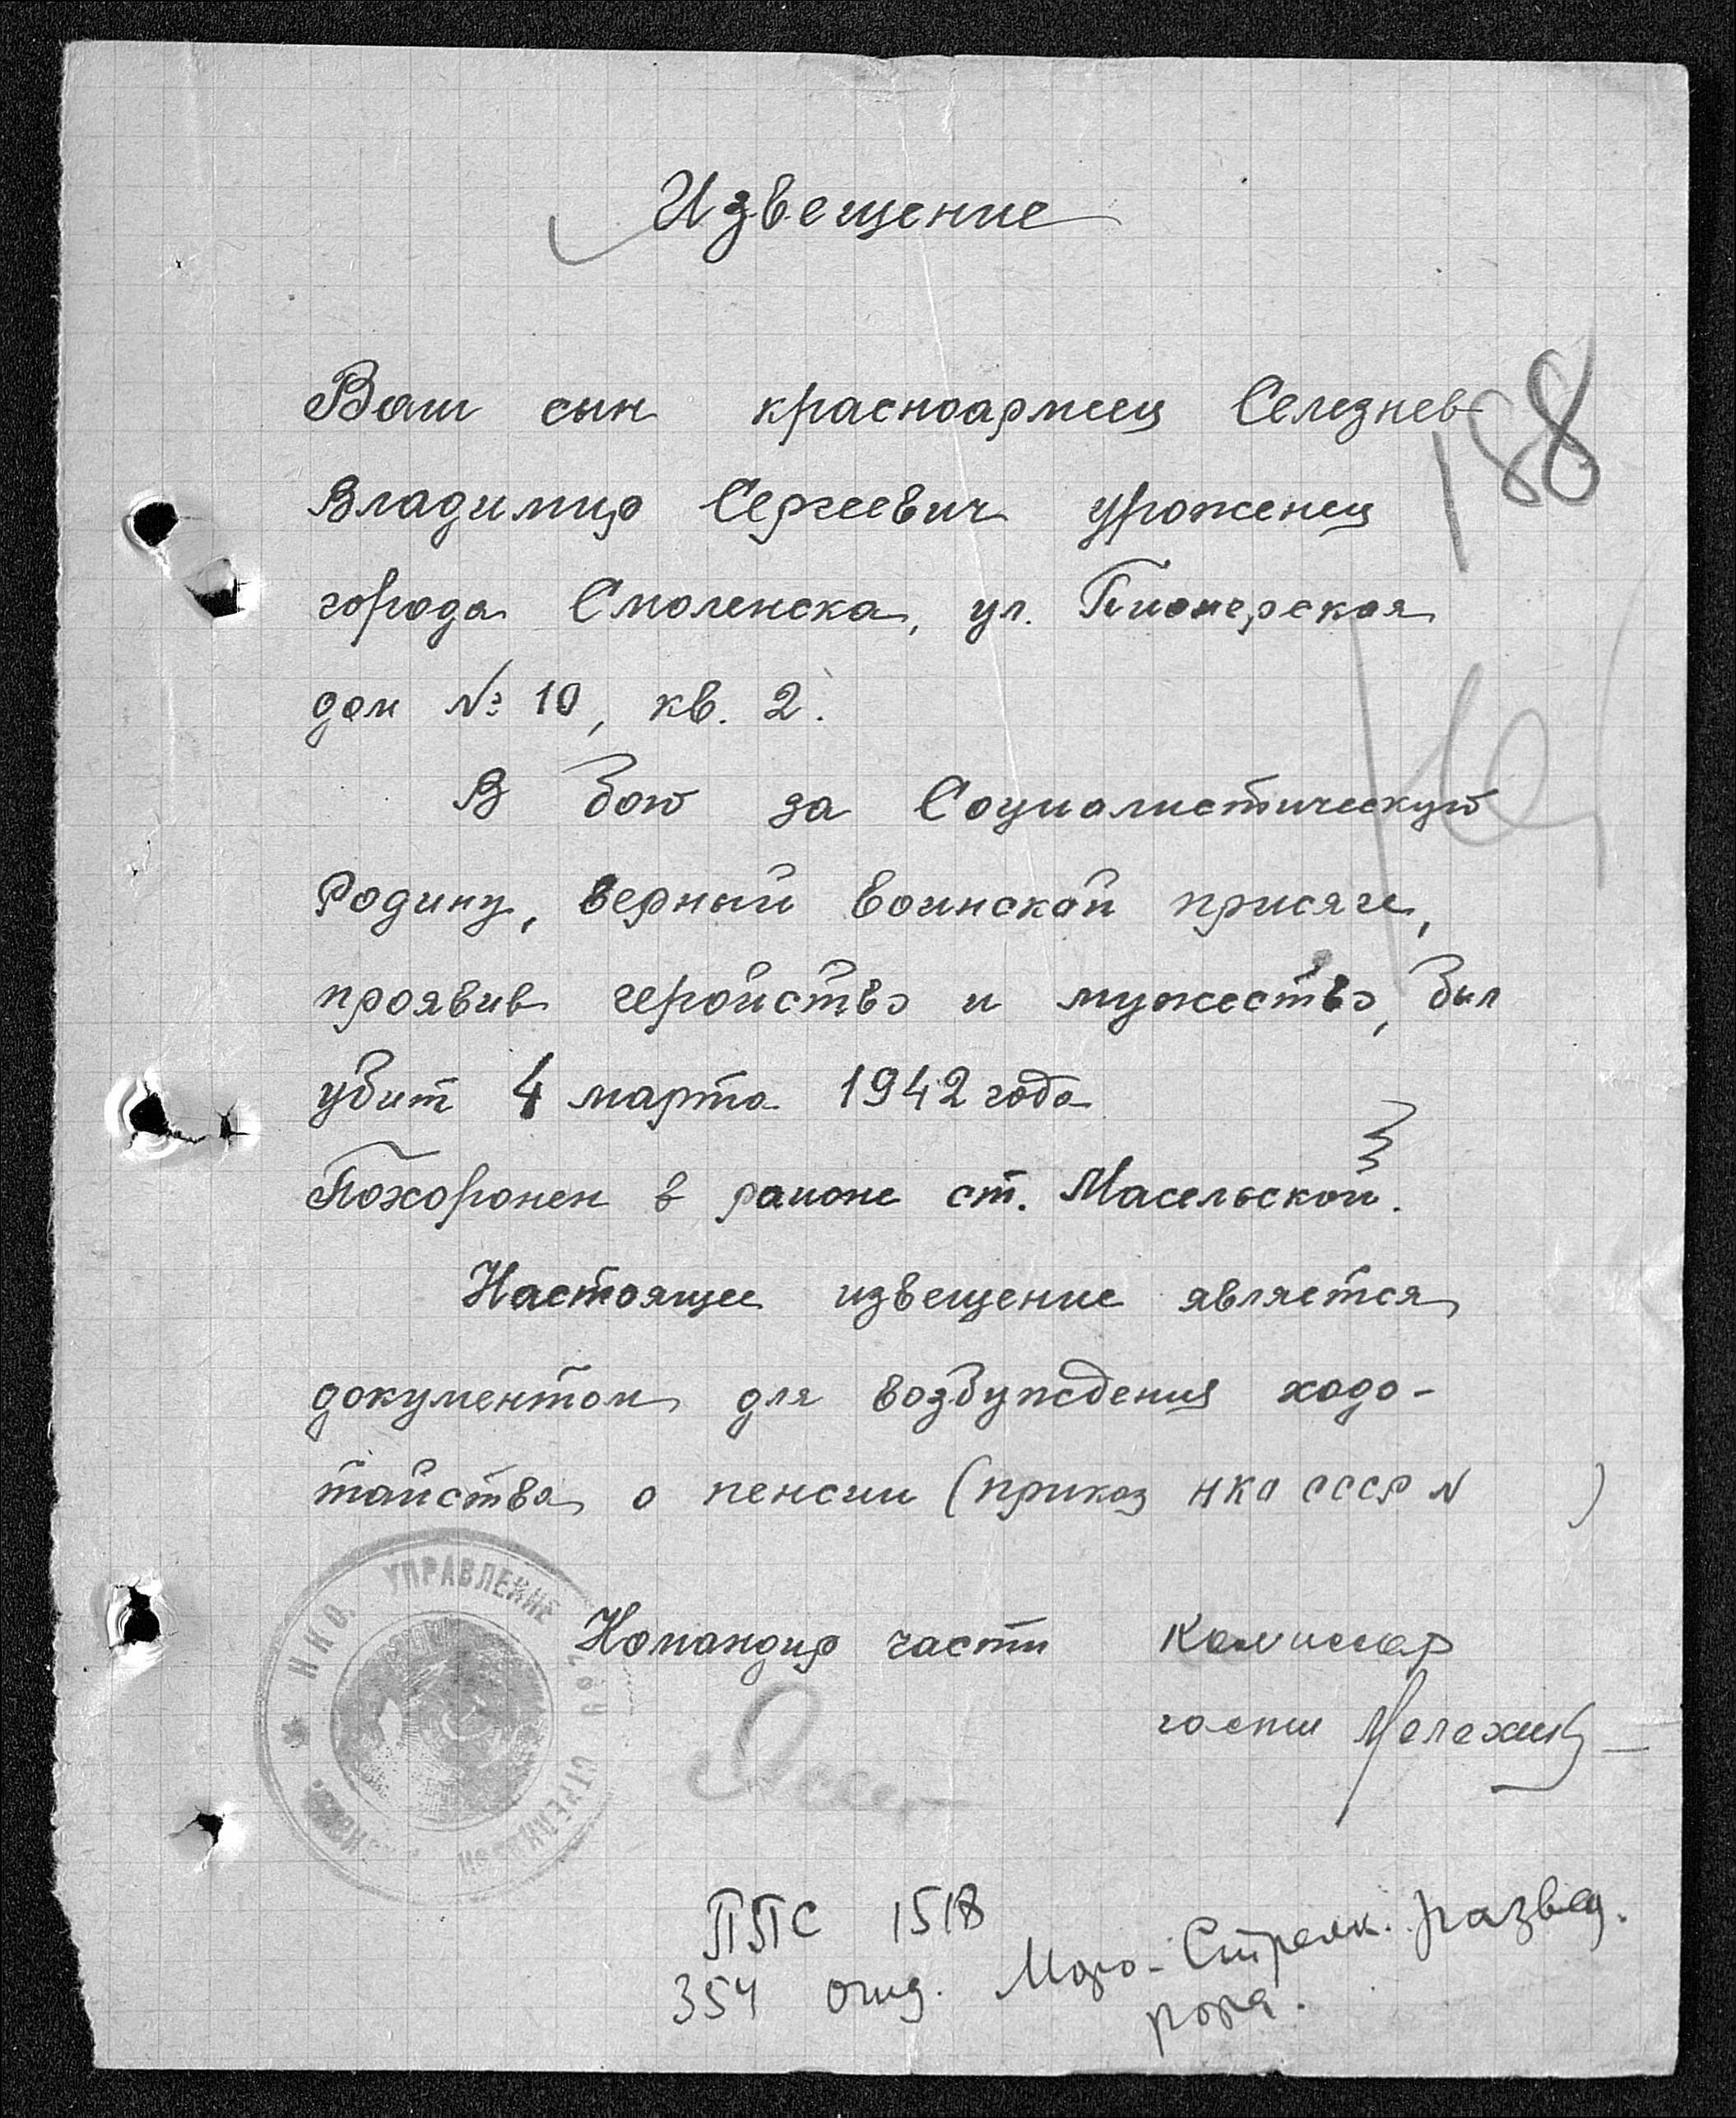 Извещение
Ваш сын красноармеец Селезнев
188
Владимир Сергеевич уроженец
города Смоленска, ул. Пионерская
дом № 10, кв. 2.
В бою за Социалистическую
Родину, верный воинской присяге,
проявив геройство и мужество, был
убит 4 марта 1942 года
Похоронен в районе ст. Масельской.
Настоящее извещение является
документом для возбуждения ходо-
тайства о пенсии (приказ НКО СССР N )
НКО УПРАВЛЕНИЕ
Командир части Комиссар
части
ППС 1518
354 отд. Мото-Стрелк. развед.
рота.